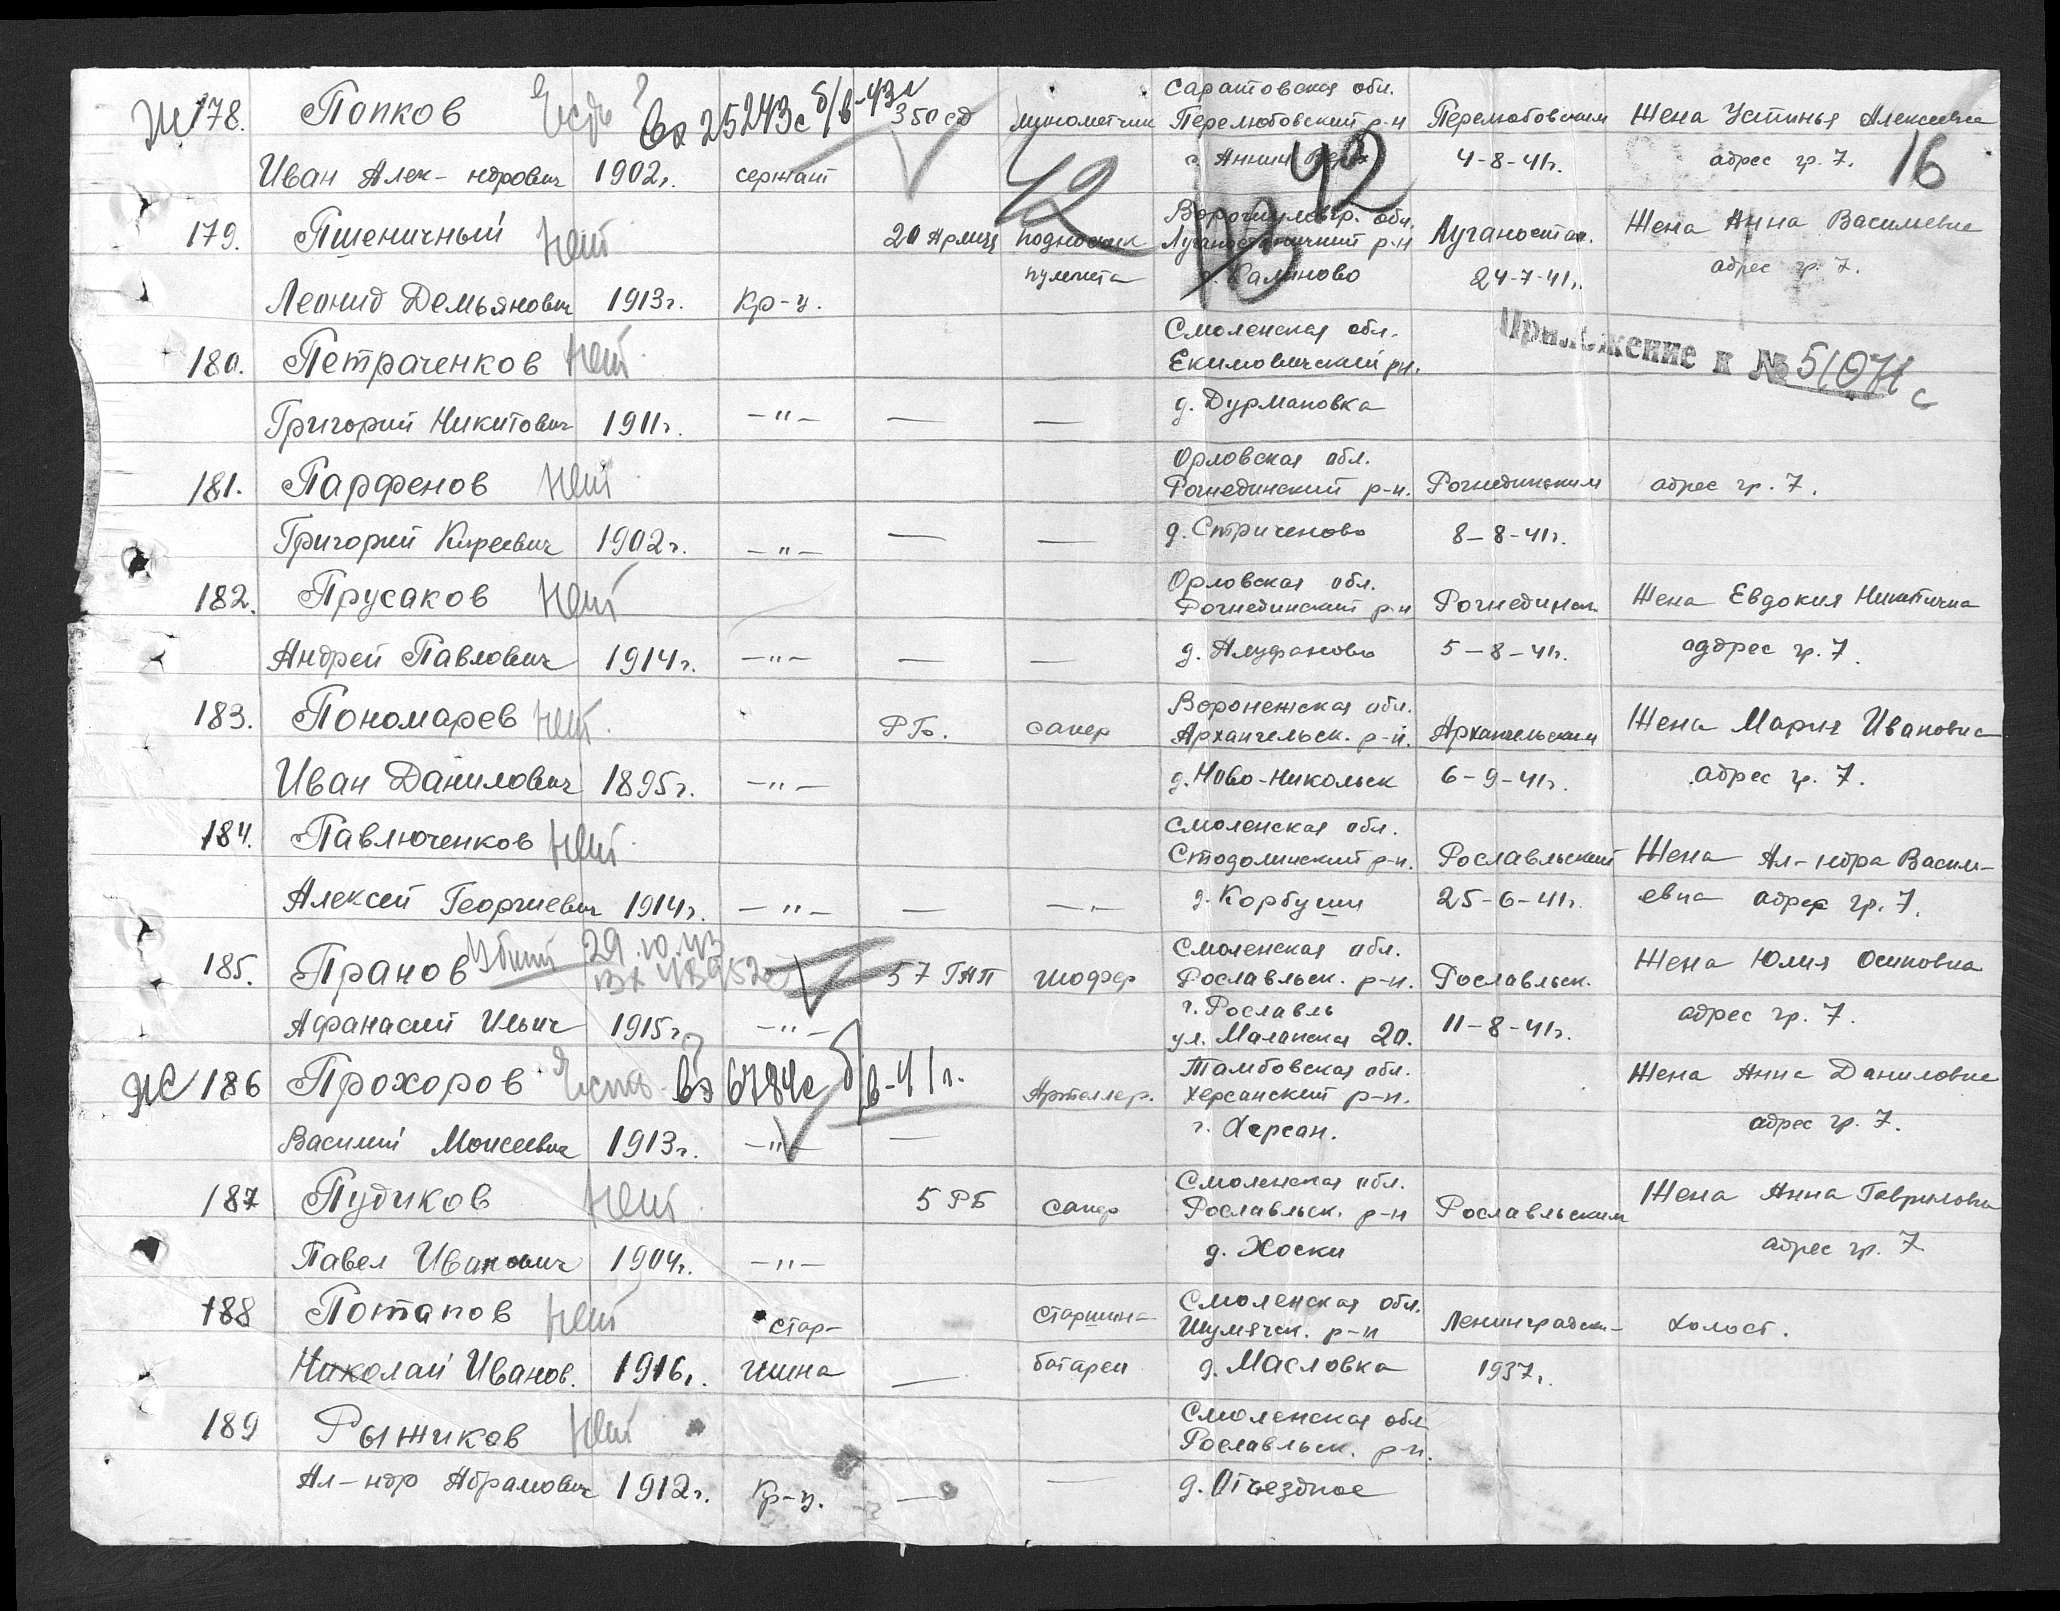 178. Попков Есть? Вх 25243с б/в-43г 350 сд минометчик Саратовская обл. Перелюбовский р-н Перелюбовским Жена Устинья Алексеевна
Иван Алек-ндрович 1902г. сержант 4-8-41г. адрес гр. 7. 16
42 42
179. Пшеничный Нет 20 Армии подносчик Ворошиловгр. обл. Жена Анна Васильевна
пулемета Калиново 24-7-41г. адрес гр. 7.
Леонид Демьянович 1913г. Кр-ц.
180. Петраченков Нет Смоленская обл. Екимовичский рн. Приложение к № 51071 с
Григорий Никитович 1911г. —"— — — д. Дурмановка
181. Парфенов Нет Орловская обл. Рогнединский р-н. Рогнединским адрес гр. 7.
Григорий Киреевич 1902г. —"— — — д. Стриченово 8-8-41г.
182. Прусаков Нет Орловская обл. Рогнединский р-н Рогнединск. Жена Евдокия Никитична
Андрей Павлович 1914г. —"— — — 5-8-41г. аддрес гр. 7.
183. Пономарев Нет РБ. сапер Воронежская обл. Архангельск. р-н. Архангельским Жена Мария Ивановна
Иван Данилович 1895г. —"— д. Ново-Никольск 6-9-41г. адрес гр. 7.
184. Павлюченков Нет Смоленская обл. Стодолищский р-н. Рославльский Жена Ал-ндра Васил-
Алексей Георгиевич 1914г. —"— — —"— д. Корбуши 25-6-41г. евна адрес гр. 7.
185. Пранов Убит 29.10.43 вх 57 ГАП шофер Смоленская обл. Рославльск. р-н. Рославльск. Жена Юлия Осиповна
Афанасий Ильич 1915г. —"— г. Рославль 11-8-41г. адрес гр. 7.
ул. 20.
186 Прохоров Есть? Вх 6784с б/в-41г. Артеллер. Тамбовская обл. Херсанский р-н. Жена Анна Даниловна
Василий Моисеевич 1913г. —"— — г. Херсан. адрес гр. 7.
187 Пудиков Нет 5 РБ сапер Смоленская обл. Рославльск. р-н Рославльским Жена Анна Гавриловна
Павел Иванович 1904г. —"— д. Хоски адрес гр. 7
188 Потапов Нет стар- старшина Смоленская обл. Шумячск. р-н Ленинградски- холост.
Николай Иванов. 1916г. шина — батареи д. Масловка 1937г.
189 Рыжиков Нет Смоленская обл Рославльск. р-н.
Ал-ндр Абрамович 1912г. Кр-ц. — — д. Отъездное